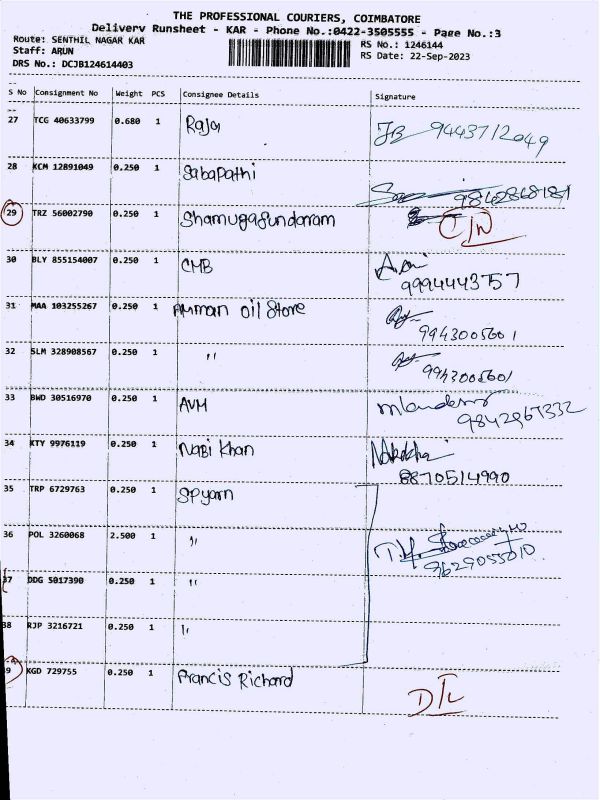 THE PROFESSIONAL COURIERS, COIMBATORE
Delivery Runsheet - KAR - Phone No.:0422-3505555 - Page No.:3
Route: SENTHIL NAGAR KAR
Staff: ARUN
DRS No.: DCJB124614403
RS No.: 1246144
RS Date: 22-Sep-2023
S No Consignment No Weight PCS Consignee Details Signature
27 TCG 40633799 0.680 1 Raja 9443712049
28 KCM 12891049 0.250 1 Sabapathi 9842868181
29 TRZ 56002790 0.250 1 Shamugasundaram
30 BLY 855154007 0.250 1 CMB 9994443757
31 MAA 103255267 0.250 1 Amman oil Store 9943005601
32 SLM 328908567 0.250 1 " 9943005601
33 BWD 30516970 0.250 1 AVM 9842967332
34 KTY 9976119 0.250 1 Nabi Khan 8870514990
35 TRP 6729763 0.250 1 SPyarn
36 POL 3260068 2.500 1 " 9629055010
37 DDG 5017390 0.250 1 "
38 RJP 3216721 0.250 1 "
39 KGD 729755 0.250 1 Francis Richard D/L